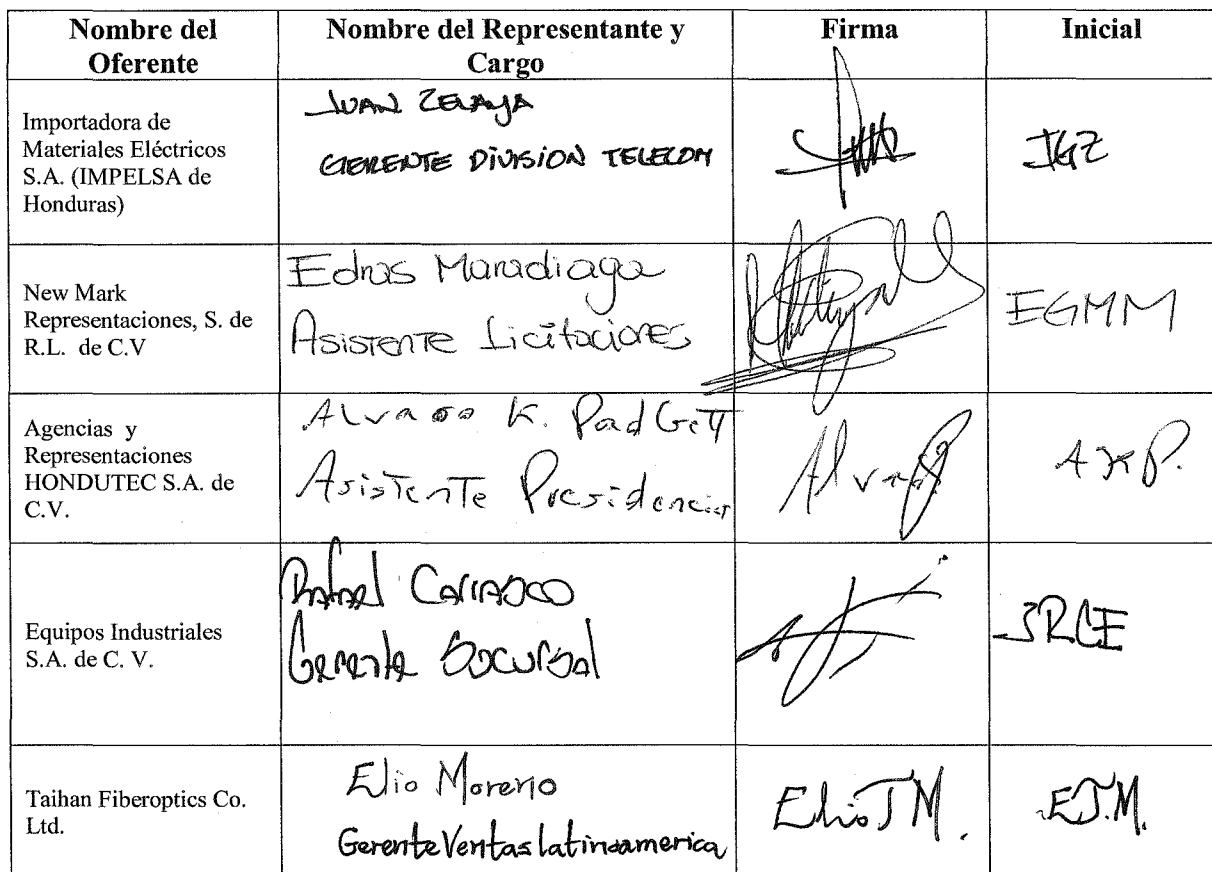 Nombre del Oferente
Nombre del Representante y Cargo
Firma
Inicial
Importadora de
Materiales Eléctricos
S.A. (IMPELSA de
Honduras)
JUAN ZELAYA
GERENTE DIVISION TELECOM
JGZ
New Mark
Representaciones, S. de
R.L. de C.V
Edras Maradiaga
Asistente Licitaciones
EGMM
Agencias y
Representaciones
HONDUTEC S.A. de
C.V.
Alvaro K. Padgett
Asistente Presidencia
AKP.
Equipos Industriales
S.A. de C. V.
Rafael Carrasco
Gerente Sucursal
JRCE
Taihan Fiberoptics Co.
Ltd.
Elio Moreno
Gerente Ventas Latinoamerica
Elio J M.
EJ.M.